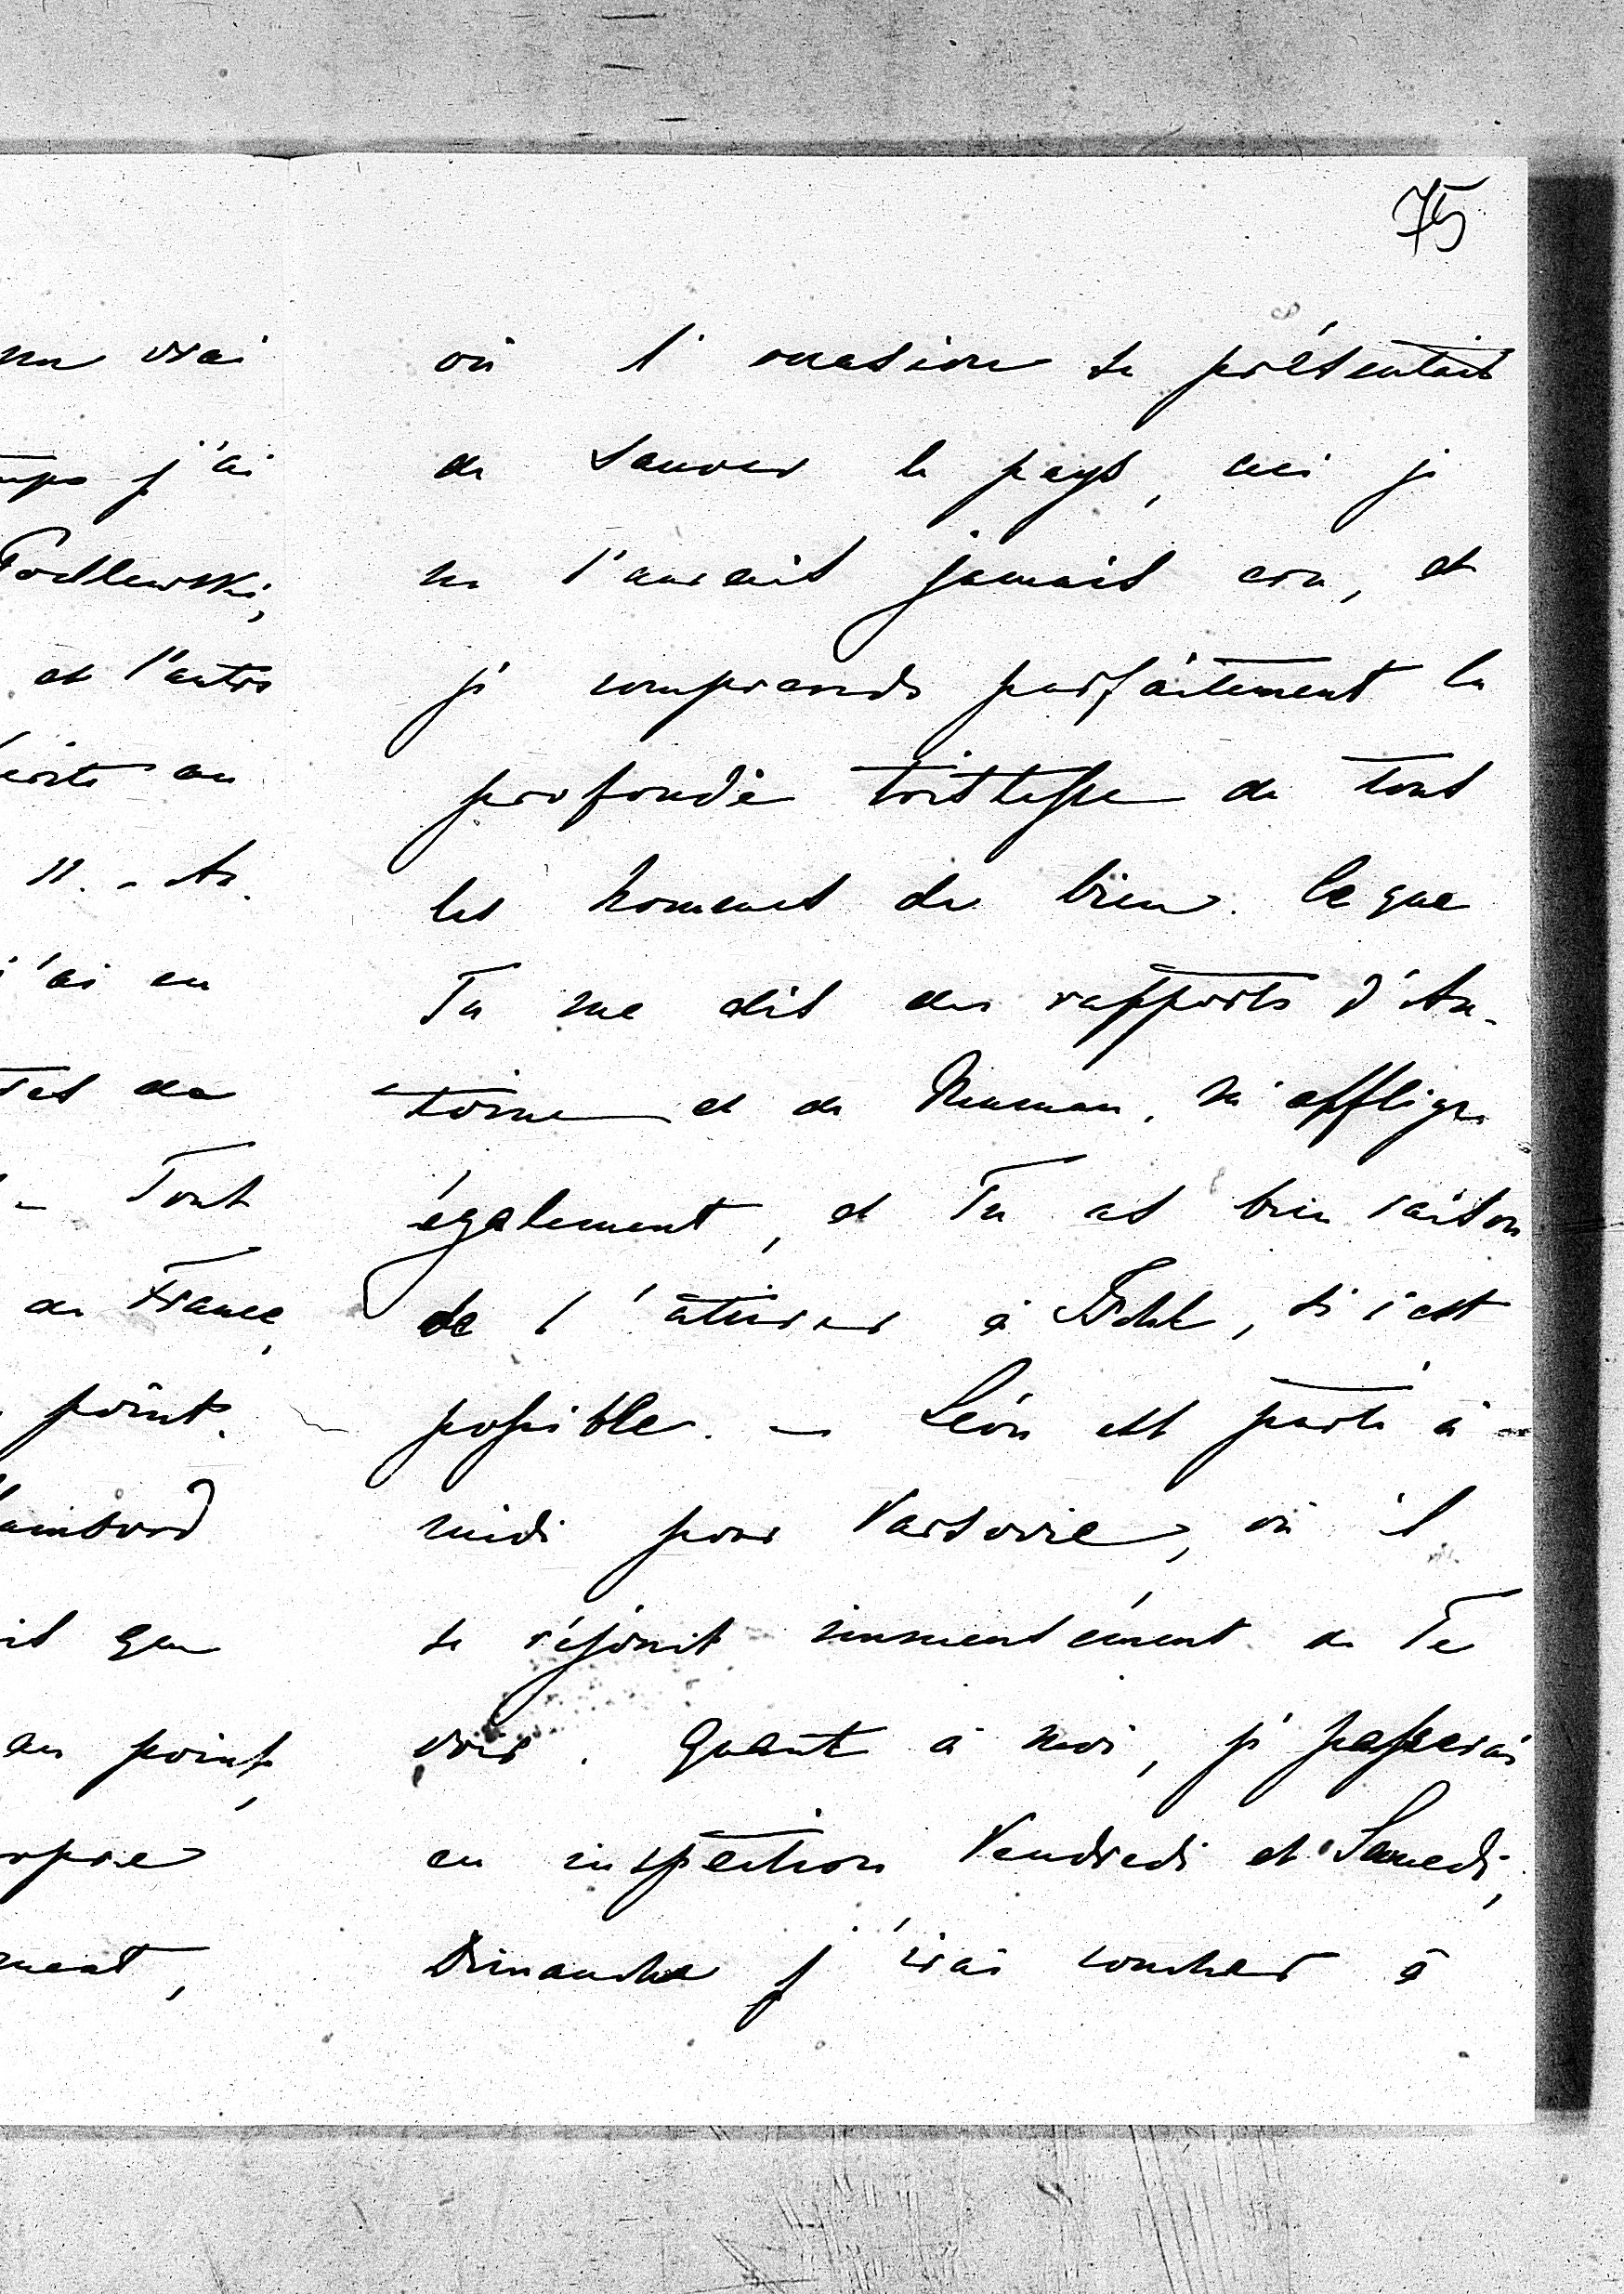 75
où l'occasion se présentait
de sauver le pays, ceci je
ne l'aurais jamais cru, et
je comprends parfaitement la
profonde tristesse de tous
les hommes de bien. Ce que
Tu me dis des rapports d'An-
toine et de Maman, m'afflige
également, et Tu as bien raison
de l'attirer à , si c'est
possible. - Léon est parti à
midi pour Varsovie, où il
se réjouit immensément de Te
voir. Quant à moi, je passerai
en inspection Vendredi et Samedi,
Dimanche j'irai coucher à
vrai
j'ai
Podlewski,
et l'autre
au
11. - An
j'ai eu
de
- Tout
de France,
point.
que
au point,